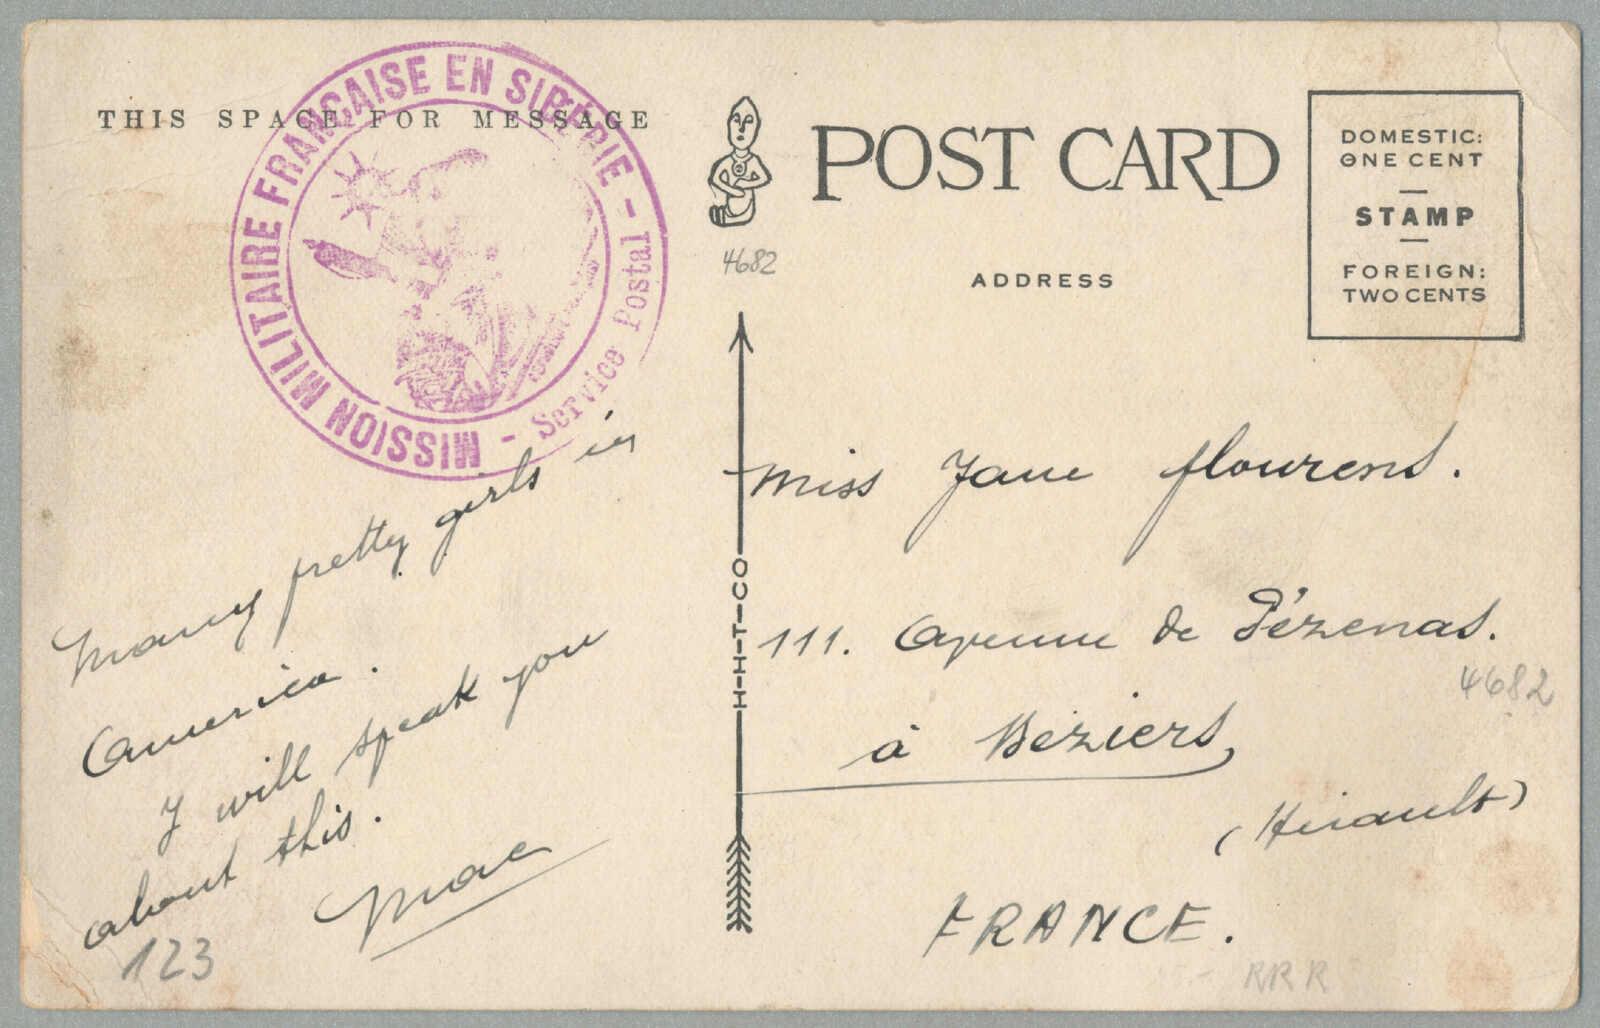 THIS SPACE FOR MESSAGE
MISSION MILITAIRE FRANÇAISE EN SIBÉRIE - Service Postal -
Many pretty girls in
America.
I will speak you
about this.
Mac
123
4682
H-H-T-CO
POST CARD
ADDRESS
DOMESTIC:
ONE CENT
STAMP
FOREIGN:
TWO CENTS
Miss Jane flourens.
111. Avenue de Pézenas.
4682
à Béziers,
(Hérault)
FRANCE.
RRR